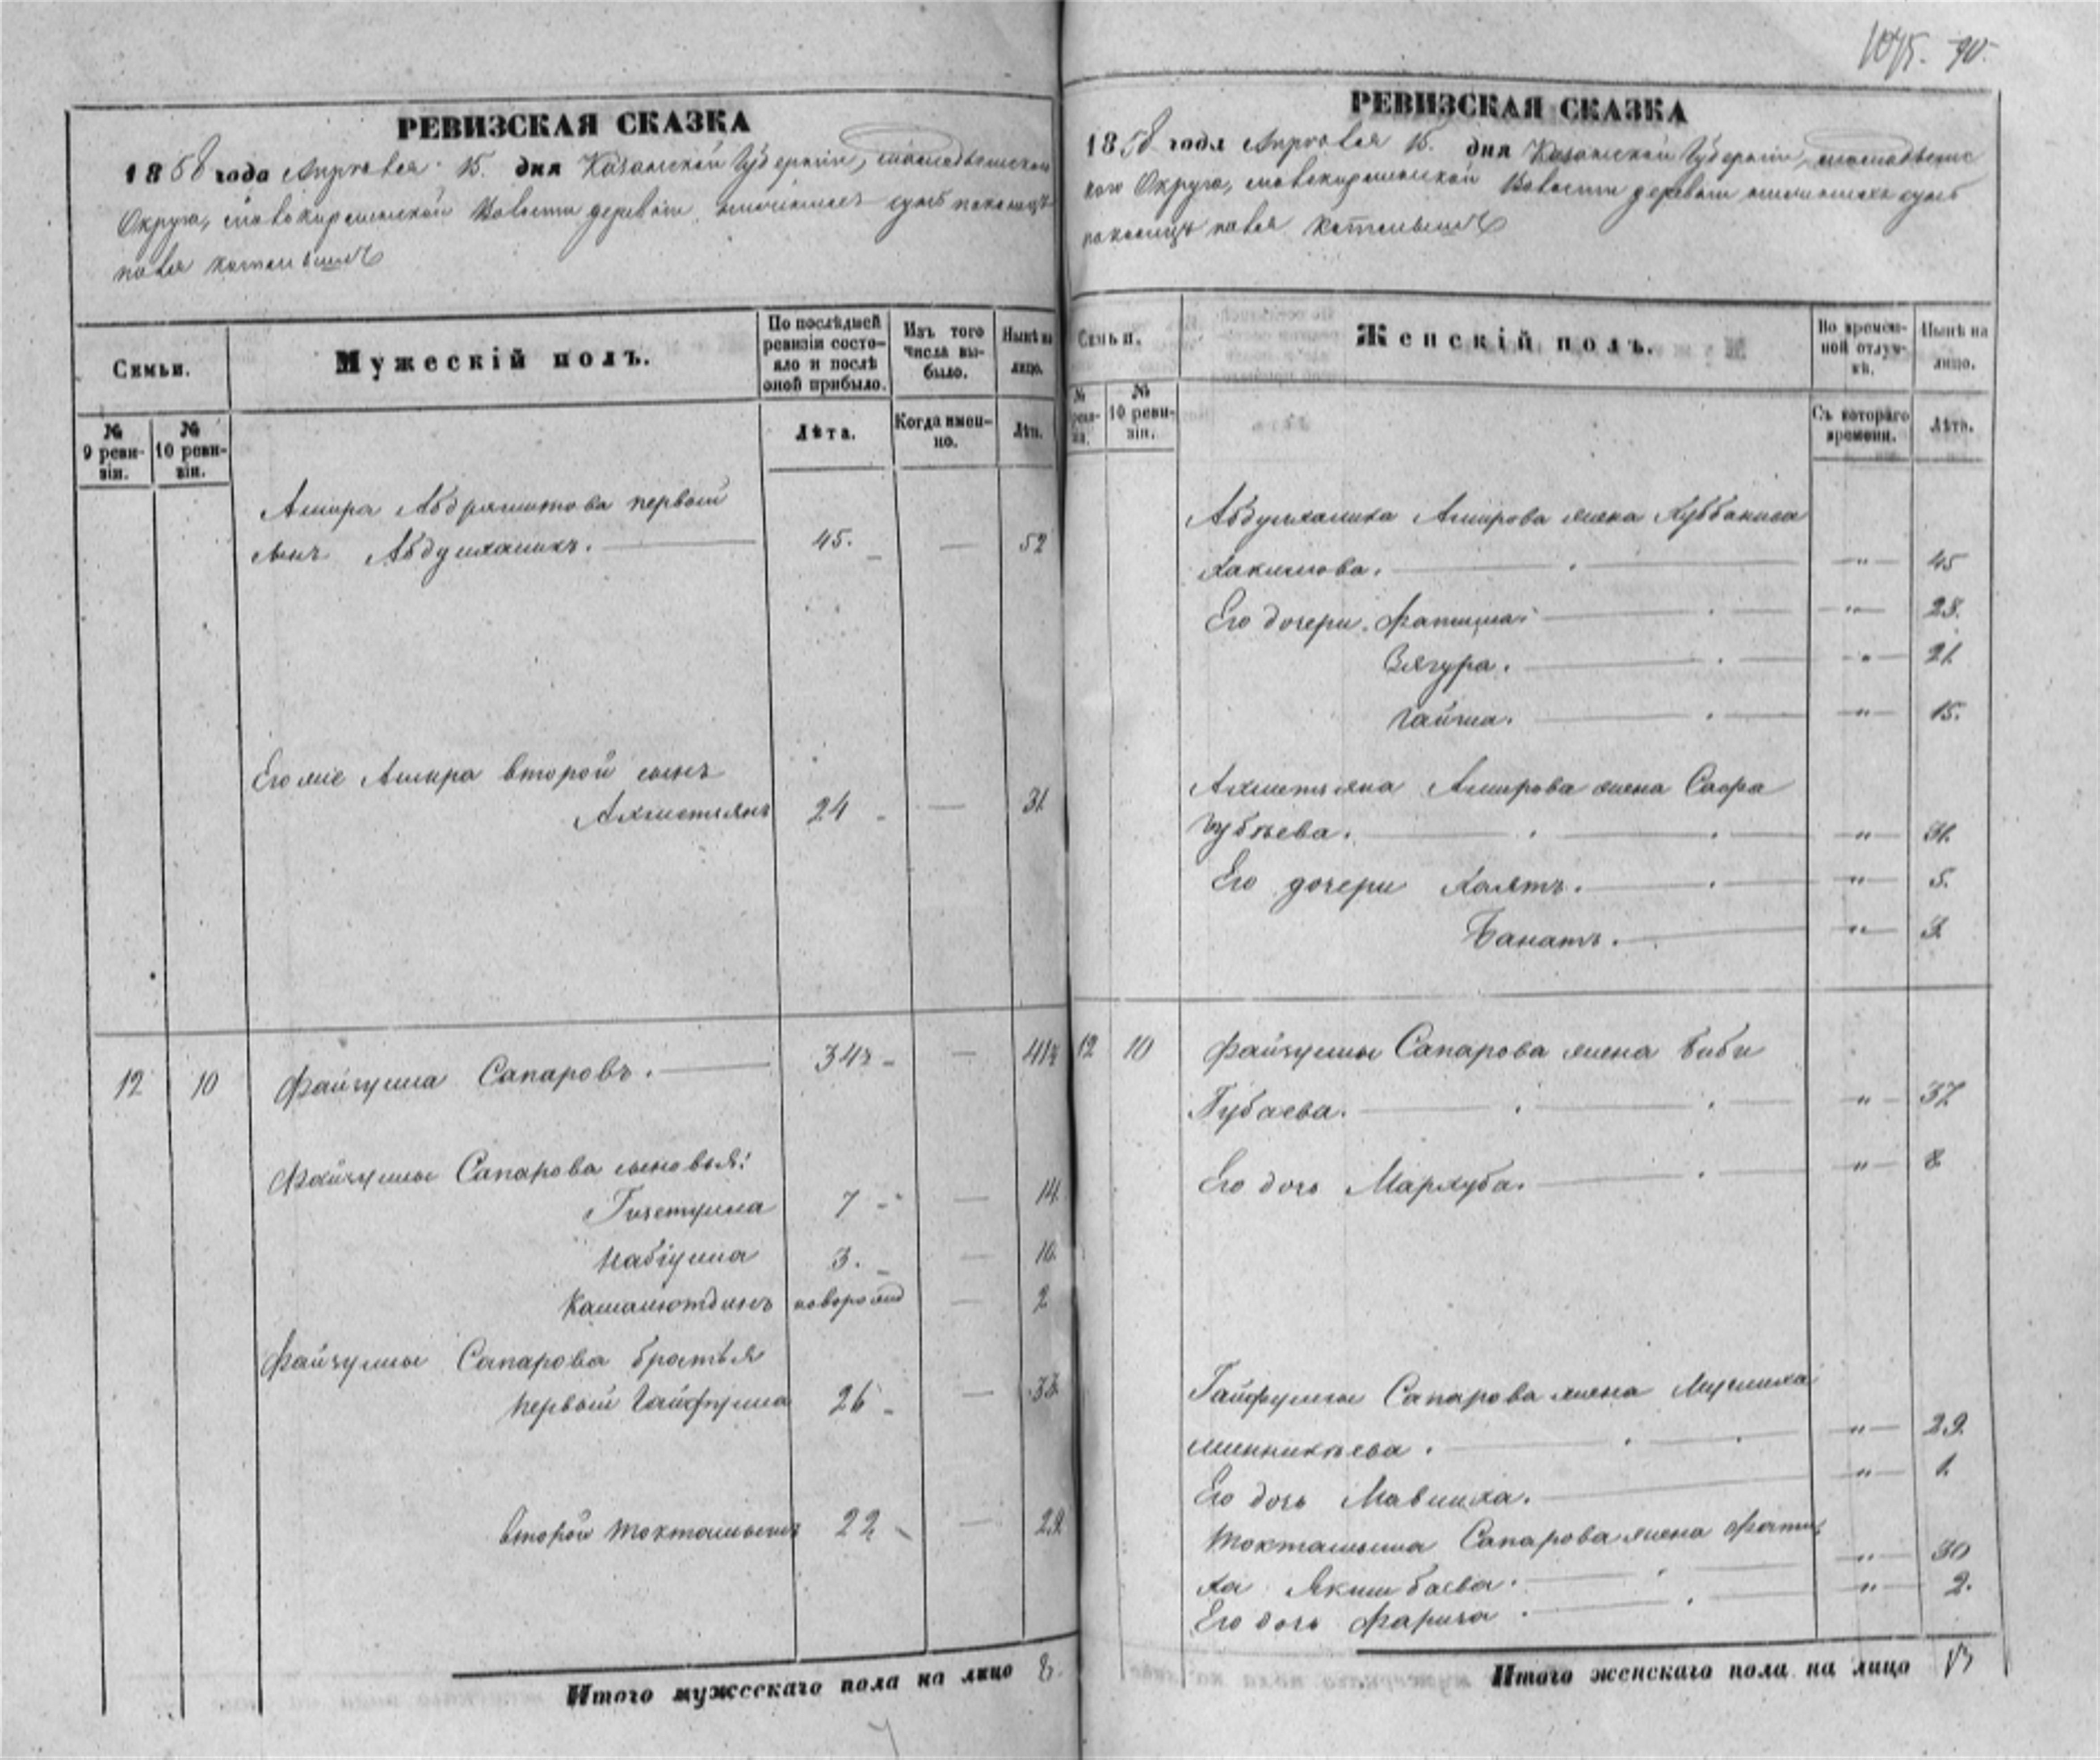 1075. 90.
РЕВИЗСКАЯ СКАЗКА
1858 года Апреля 15. дня Казанской Губернии,
Округа, волости деревни
РЕВИЗСКАЯ СКАЗКА
1858 года Апреля 15. дня Казанской Губернии,
кого Округа, волости деревни
Семьи.
Мужескій полъ.
По послѣдней ревизіи состояло и послѣ оной прибыло.
Изъ того числа выбыло.
Нынѣ на лицо.
№ 9 ревизіи.
№ 10 ревизіи.
Лѣта.
Когда именно.
Лѣт.
Амира Абдряшитова первый
сынъ Абдулхаликъ. 45. — 52
Его же Амира второй сынъ
Ахметьянъ 24 — 31
12 10 Файзулла Сапаровъ. 34½ — 41½
Файзуллы Сапарова сыновья:
Гизетулла 7 — 14
Набіулла 3. — 10
Камалютдинъ новорожд — 2
Файзуллы Сапарова братья
первый Гайфулла 26 — 33
второй Токтамышъ 22 — 29
Итого мужескаго пола на лицо 8.
Семьи.
Женскій полъ.
Во временной отлучкѣ.
Нынѣ на лицо.
№ ревизіи.
№ 10 ревизіи.
Съ котораго времени.
Лѣта.
Абдулхалика Амирова жена
Хакимова. " 45
Его дочери Фатиха " 28.
Зягура. " 21
Гайша. " 15.
Ахметьяна Амирова жена Сафа
Губѣева. " 31.
Его дочери Хаятъ. " 5.
Банатъ. " 3
12 10 Файзуллы Сапарова жена Биби
Губаева. " 37
Его дочь Мархуба. " 8
Гайфуллы Сапарова жена
" 29
Его дочь " 1.
Токтамыша Сапарова жена Фати
ха Якшибаева. " 30
Его дочь Фариза " 2.
Итого женскаго пола на лицо 13